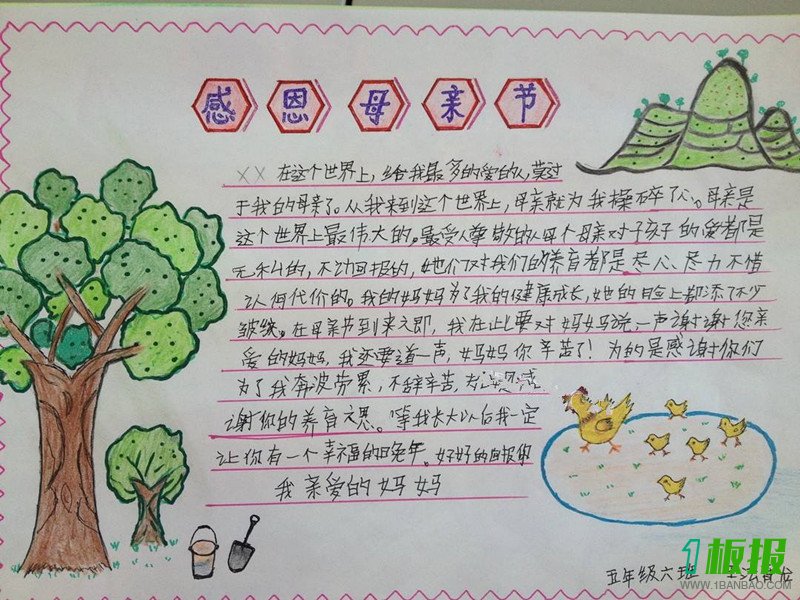 感恩母亲节
XX 在这个世界上,给我最多的爱的人莫过
于我的母亲了。从我来到这个世界上,母亲就为我操碎了心。母亲是
这个世界上最伟大的。最受人尊敬的人每个母亲对于孩子的爱都是
无私的,不动回报的,她们对我们的养育都是尽心、尽力不惜
认何代价的。我的妈妈为了我的健康成长,她的脸上都添了不少
皱纹。在母亲节到来之即,我在此要对妈妈说一声谢谢您亲
爱的妈妈,我还要道一声,妈妈你辛苦了!为的是感谢你们
为了我奔波劳累,不辞辛苦,
谢你的养育之恩。等我长大以后我一定
让你有一个幸福的晚年。好好的回报你
我亲爱的妈妈
五年级六班
1板报
WWW.1BANBAO.COM